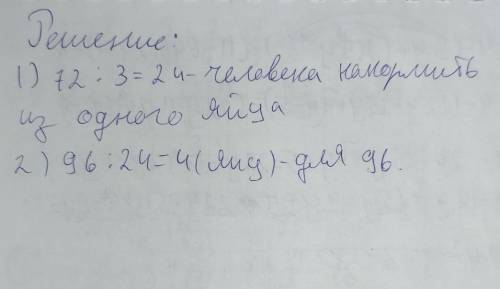 Решение:
1) 72 : 3 = 24 - человека накормить
из одного яйца
2) 96 : 24 = 4 (яиц) - для 96.